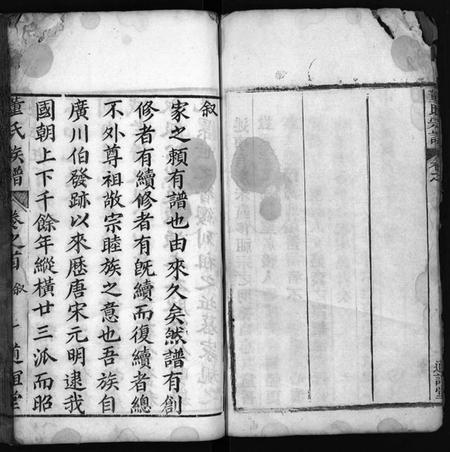 叙
家之頼有譜也由來久矣然譜有創
修者有續修者有旣續而復續者總
不外尊祖敬宗睦族之意也吾族自
廣川伯發跡以來歷唐宋元明逮我
國朝上下千餘年縱橫廿三派而昭
董氏族譜 卷之首 叙 一 道誼堂